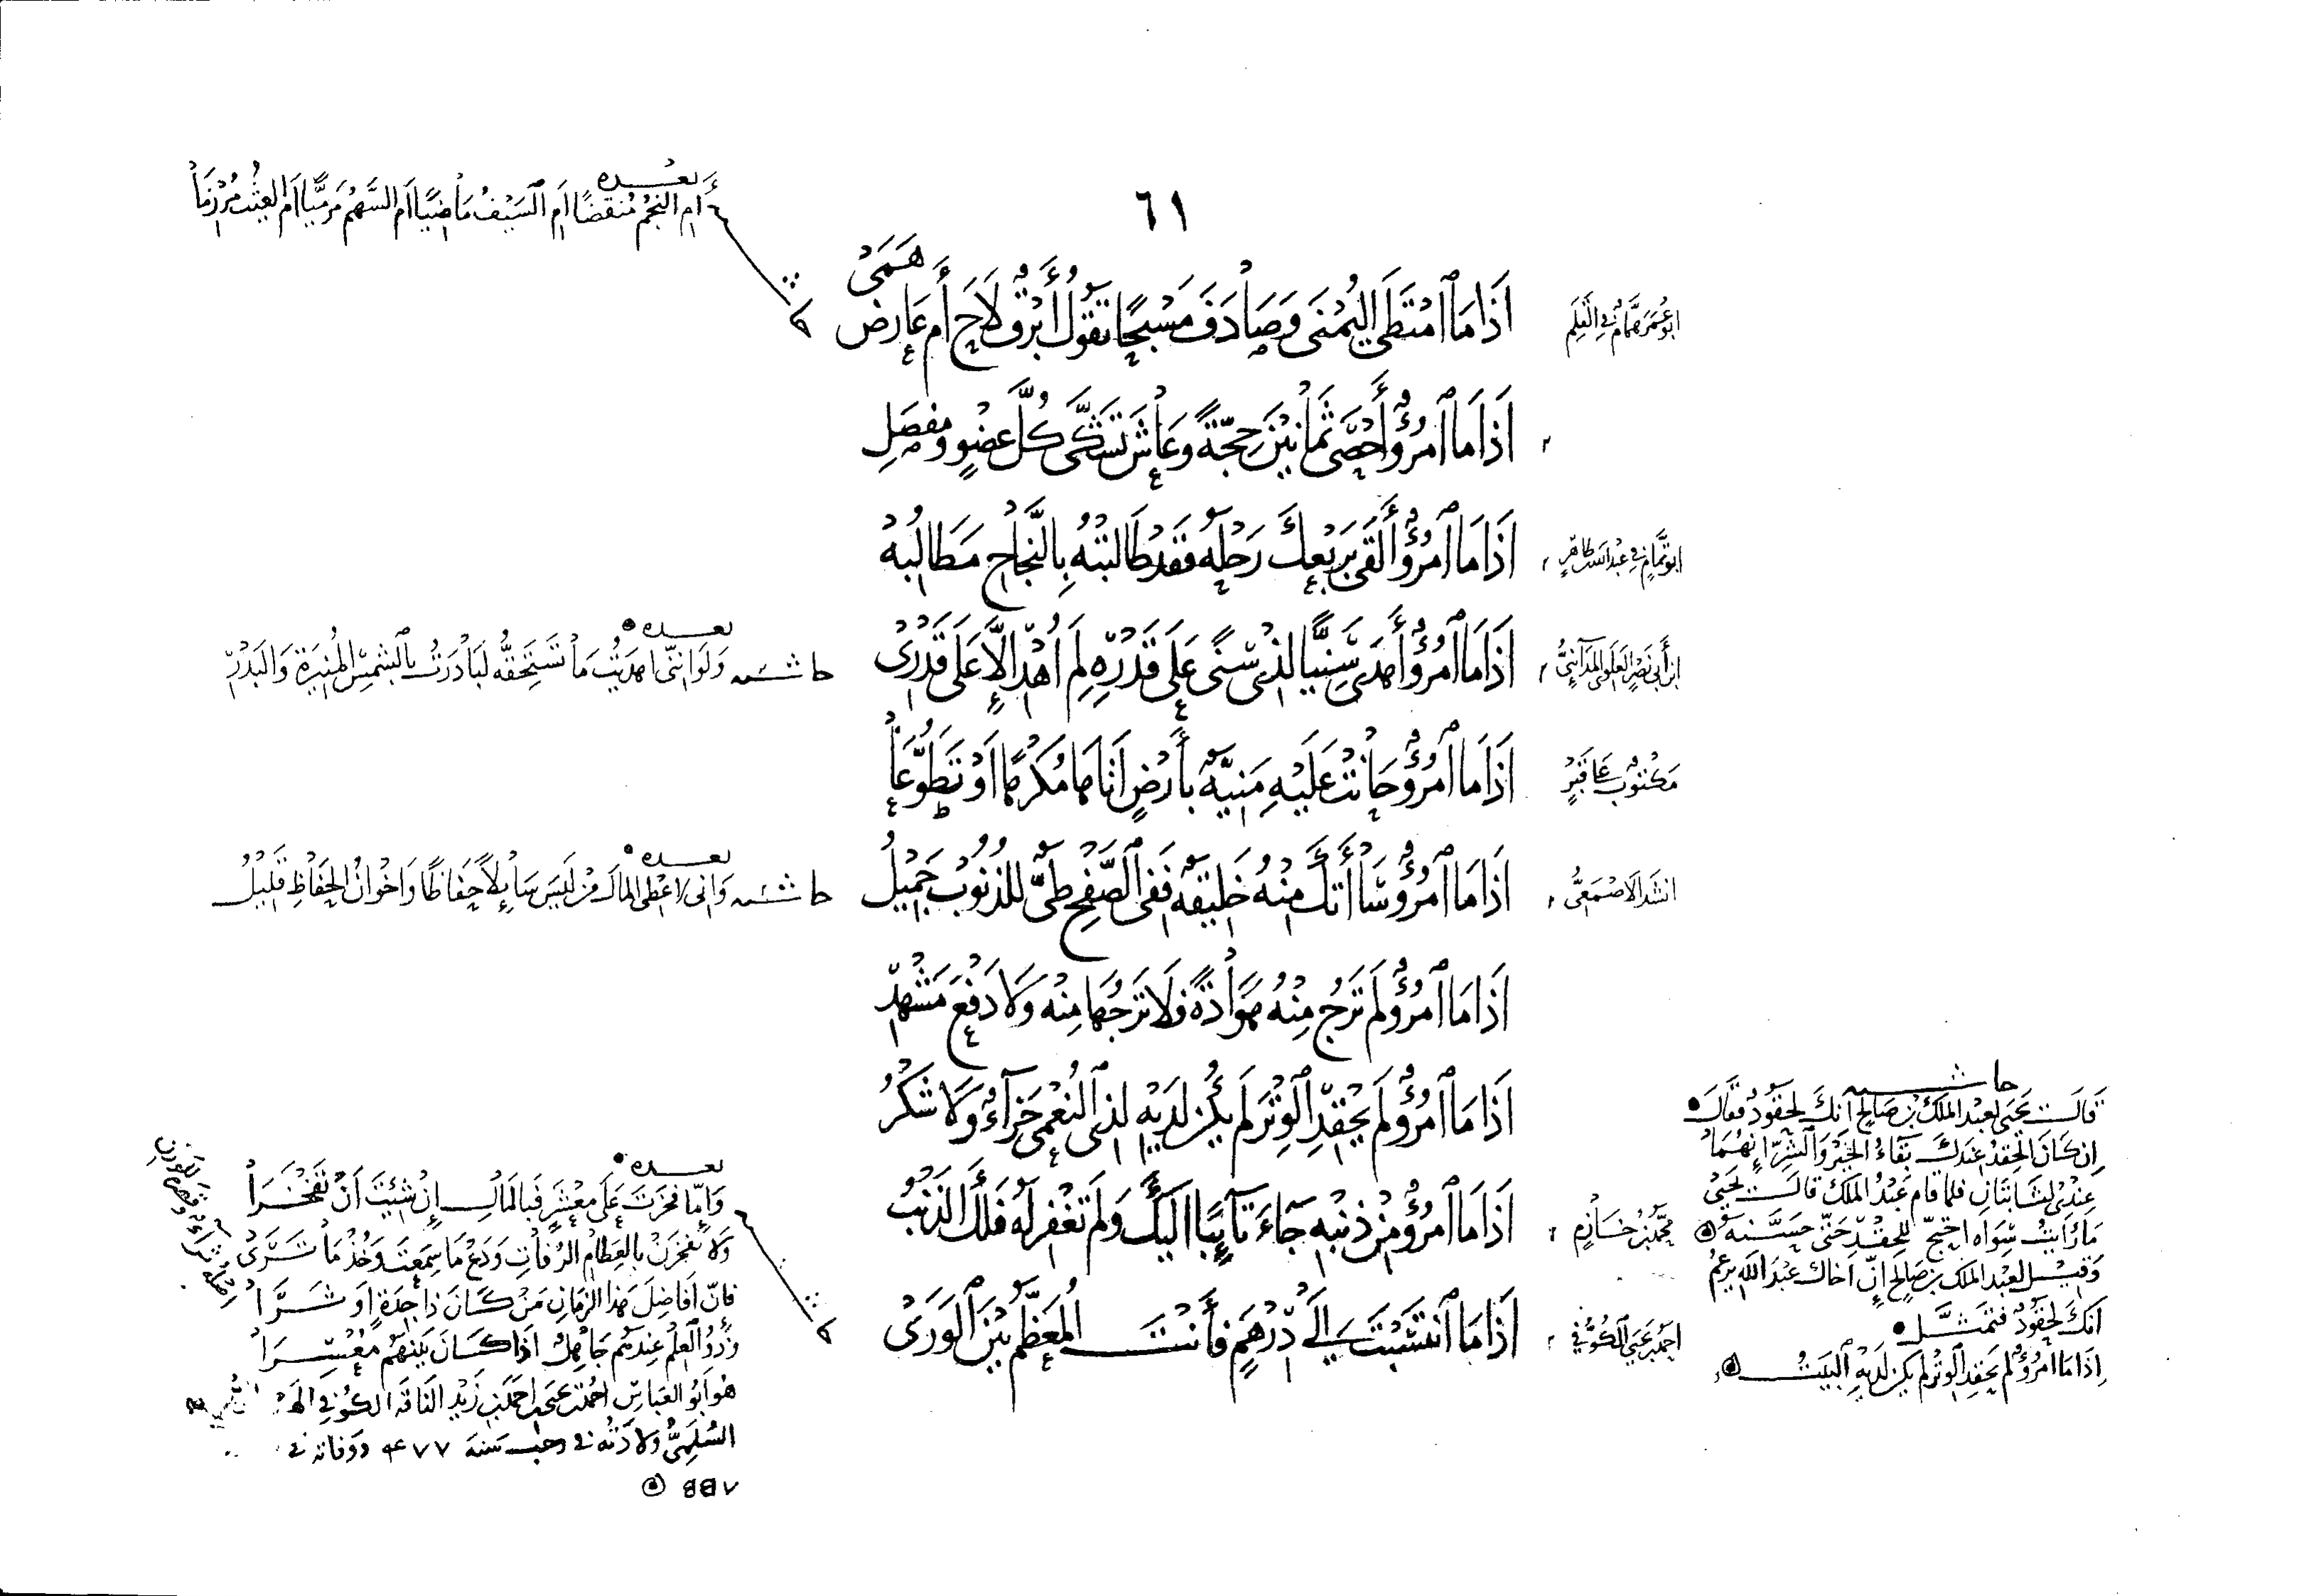 ٦١
أبو عمر همام في القلم
إِذَا مَا امْتَطَى الْيُمْنَى وَصَادَفَ مَسْبَحًا تَقُولُ أَبَرْقٌ لَاحَ أَم عَارِضٌ هَمَى
بعده
أَمِ النَّجْمُ مُنْقَضًّا أَمِ السَّيْفُ مَاضِيًا أَمِ السَّهْمُ مَرْمِيًّا أَمِ الْغَيْثُ مُرْزِمَا
إِذَا مَا امْرُؤٌ أَحْصَى ثَمَانِينَ حِجَّةً وَعَاشَ تَشَكَّى كُلُّ عُضْوٍ وَمَفْصِلِ
أبو تمام في عبد الله بن طاهر
إِذَا مَا امْرُؤٌ أَلْقَى بِرَبْعِكَ رَحْلَهُ فَقَدْ طَالَبَتْهُ بِالنَّجَاحِ مَطَالِبُهْ
ابن أبي نصر العلوي المدائني
إِذَا مَا امْرُؤٌ أَهْدَى سَنِيًّا لِذِي سَنًى عَلَى قَدْرِهِ لَمْ أُهْدِ إِلَّا عَلَى قَدْرِي
بعده
حاشية وَلَوْ أَنَّنِي أَهْدَيْتُ مَا تَسْتَحِقُّهُ لَبَادَرْتُ بِالشَّمْسِ الْمُنِيرَةِ وَالْبَدْرِ
مكتوب على قبر
إِذَا مَا امْرُؤٌ حَانَتْ عَلَيْهِ مَنِيَّةٌ بِأَرْضٍ أَتَاهَا مُكْرَهًا أَوْ تَطَوُّعَا
أنشد الأصمعي
إِذَا مَا امْرُؤٌ سَاءَتْكَ مِنْهُ خَلِيقَةٌ فَفِي الصَّفْحِ طَيٌّ لِلذُّنُوبِ جَمِيلُ
بعده
حاشية وَإِنِّي لَأُعْطِي الْمَالَ مَنْ لَيْسَ سَائِلًا حِفَاظًا وَإِخْوَانُ الْحِفَاظِ قَلِيلُ
إِذَا مَا امْرُؤٌ لَمْ تَرْجُ مِنْهُ هَوَادَةً فَلَا تَرْجُهَا مِنْهُ وَلَا دَفْعَ مَشْهَدِ
إِذَا مَا امْرُؤٌ لَمْ يَحْقِدِ الْوِتْرَ لَمْ يَكُنْ لَدَيْهِ لِذِي النُّعْمَى جَزَاءٌ وَلَا شُكْرُ
حاشية
قال يحيى لعبد الملك بن صالح إنك لحقود فقال
إن كان الحقد عندك بقاء الخير والشر إنهما
عندي لثابتان فلما قام عبد الملك قال يحيى
ما رأيت سواه احتج للحقد حتى حسنه
وقيل لعبد الملك بن صالح إن أخاك عبد الله يزعم
أنك لحقود فتمثل
إذا ما امرؤ لم يحقد الوتر لم يكن لديه البيت
محمد بن خازم
إِذَا مَا امْرُؤٌ مِنْ ذَنْبِهِ جَاءَ تَائِبًا إِلَيْكَ وَلَمْ تَغْفِرْ لَهُ فَلَكَ الذَّنْبُ
أحمد بن يحيى الكوفي
إِذَا مَا انْتَسَبْتَ إِلَى دِرْهَمٍ فَأَنْتَ الْمُعَظَّمُ بَيْنَ الْوَرَى
بعده
وَإِمَّا فَخَرْتَ عَلَى مَعْشَرٍ فَبِالْمَالِ إِنْ شِئْتَ أَنْ تَفْخَرَا
وَلَا تَفْخَرَنْ بِالْعِظَامِ الرُّفَاتِ وَدَعْ مَا سَمِعْتَ وَخُذْ مَا تَرَى
فَإِنَّ أَفَاضِلَ هَذَا الزَّمَانِ مَنْ كَانَ ذَا جِدَةٍ أَوْ ثَرَا
وَذُو الْعِلْمِ عِنْدَهُمُ جَاهِلٌ إِذَا كَانَ بَيْنَهُمُ مُعْسِرَا
هو أبو العباس أحمد بن يحيى بن أحمد بن زيد الناقة الكوفي
السلمي ولادته في رجب سنة ٤٧٧ ووفاته في